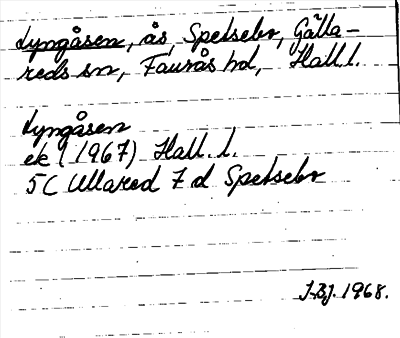 Lyngåsen, ås, Spetsebo, Gälla-
reds sn, Faurås hd, Hall.l.
Lyngåsen
ek (1967) Hall. l.
5C Ullared 7 d Spetsebo
J.Bj. 1968.